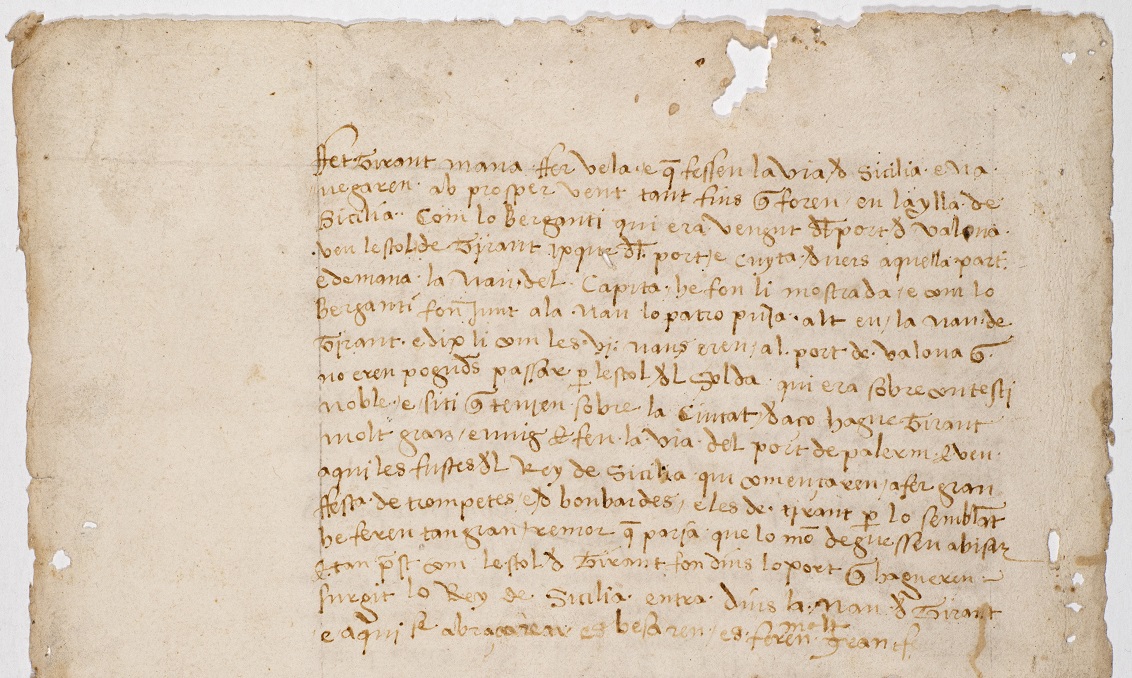 ffet Tirant mana ffer vela e q̃ fessen la via d̃ Sicilia e na
vegaren ab prosper vent tant fins q̃ foren en la ylla de
Sicilia. Com lo berganti qui era vengut dl̃ port d̃ valona
veu lestol de Tirant ixque dl̃ port e cuyta d̃ vers aquella part
e demana la nau del Capita he fon li mostrada e com lo
berganti fon junt ala nau lo patro puja alt en la nau de
Tirant e dix li com les vj naus eren al port de valona q̃
no eren poguds passar p̃ lestol d̃l Solda qui era sobre contesti
noble e siti q̃ tenien sobre la Ciutat d̃ aço hague Tirant
molt gran enuig & feu la via del port de palerm & veu
aqui les fustes d̃l Rey de Sicilia qui començaren a fer gran
ffesta de trompetes e d̃ bonbardes e les de tirant p̃ lo semblãt
he feren tan gran tremor q̃ paria que lo mõ degues sen abisar
& tan p̃st com lestol d̃ Tirant fon dins lo port q̃ hagueren
surgit lo Rey de Sicilia entra dins la nau d̃ Tirant
e aqui se abraçaren es besaren es feren molt gran f